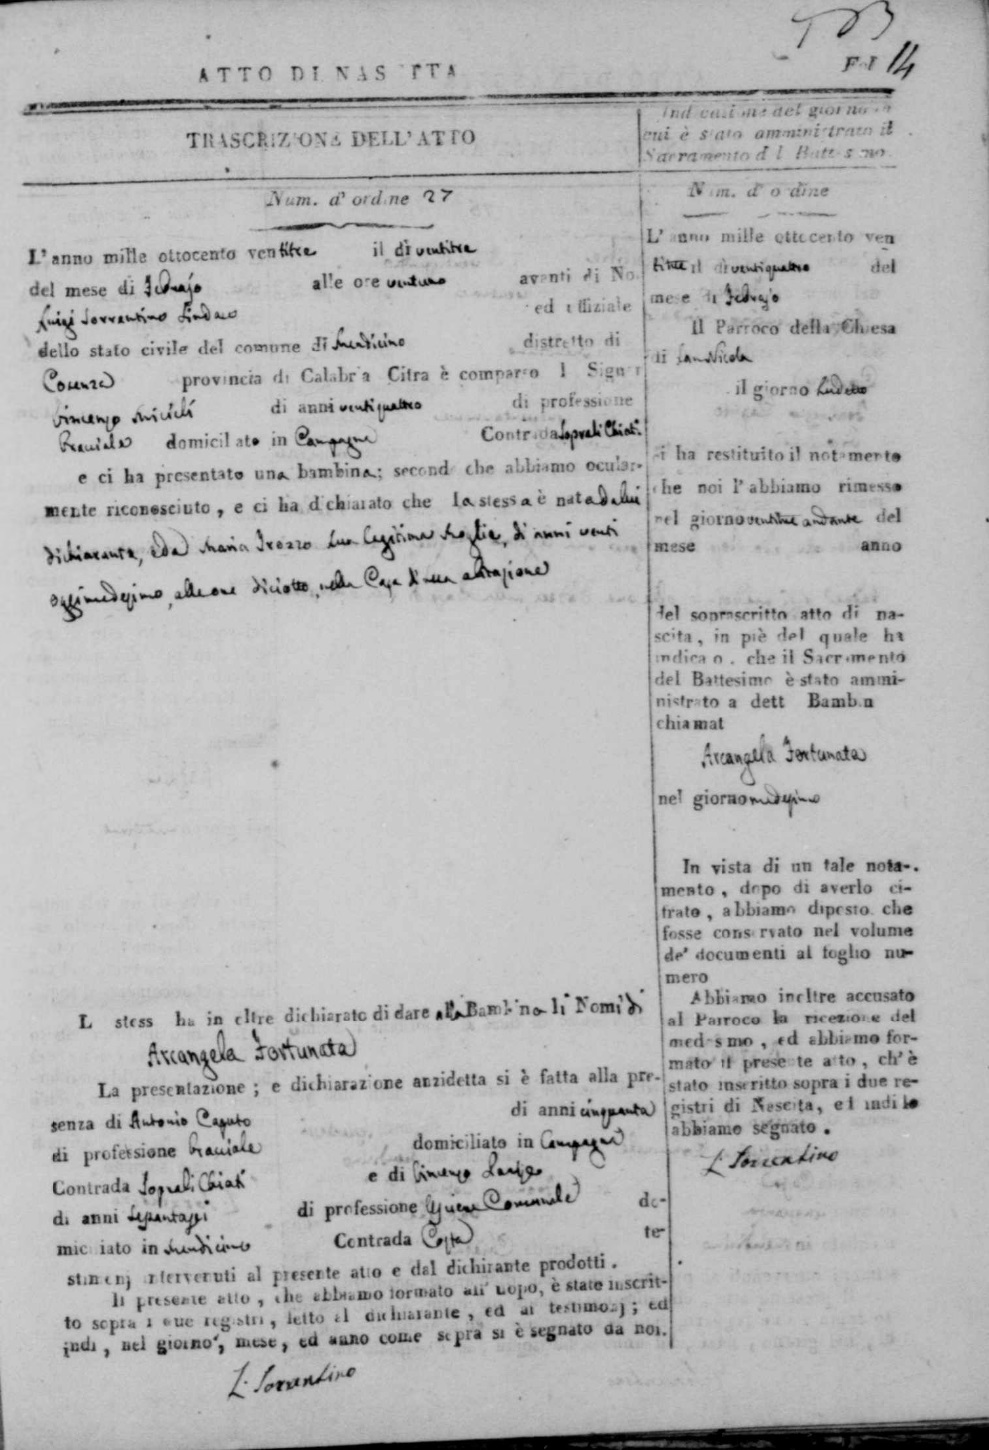 F. I 14
ATTO DI NASCITTA
TRASCRIZIONE DELL'ATTO
Num. d' ordine 27
L' anno mille ottocento ventitre il dì ventitre
del mese di Febrajo alle ore ventuno avanti di No
Luigi Sorrentino Sindaco ed uffiziale
dello stato civile del comune di Mendicino distretto di
Cosenza provincia di Calabria Citra è comparso l Signor
Vincenzo di anni ventiquattro di professione
Bracciale domiciliato in Campagna Contrada Soprali Chiati
e ci ha presentato una bambina; secondo che abbiamo ocular-
mente riconosciuto, e ci ha dichiarato che la stessa è nata da lui
dichiarante, e da Maria Irozzo sua legitima Moglie, di anni venti
oggi medesimo, alle ore diciotto, nella Casa di sua abitazione
L stess ha in oltre dichiarato di dare alla Bambina li Nomi di
Arcangela Fortunata
La presentazione; e dichiarazione anzidetta si è fatta alla pre-
senza di Antonio Caputo di anni cinquanta
di professione bracciale domiciliato in Campagna
Contrada Soprali Chiati e di Vincenzo
di anni di professione Comunale do-
miciliato in Mendicino Contrada Costa te-
stimonj intervenuti al presente atto e dal dichirante prodotti.
Il presente atto, che abbiamo formato all' uopo, è stato inscrit-
to sopra i due registri, letto al dichiarante, ed ai testimonj; ed
indi, nel giorno, mese, ed anno come sopra si è segnato da noi.
L. Sorrentino
Indicazione del giorno in
cui è stato amministrato il
Sacramento del Battesimo.
Num. d' ordine
L' anno mille ottocento ven
titre il dì ventiquattro del
mese di Febrajo
Il Parroco della Chiesa
di San Nicola
il giorno sudetto
ci ha restituito il notamento
che noi l' abbiamo rimesso
nel giorno ventitre andante del
mese anno
del soprascritto atto di na-
scita, in piè del quale ha
indicato, che il Sacramento
del Battesimo è stato ammi-
nistrato a dett Bambin
chiamat
Arcangela Fortunata
nel giorno medesimo
In vista di un tale nota-
mento, dopo di averlo ci-
frato, abbiamo diposto che
fosse conservato nel volume
de' documenti al foglio nu-
mero
Abbiamo inoltre accusato
al Parroco la ricezione del
medesimo, ed abbiamo for-
mato il presente atto, ch' è
stato inscritto sopra i due re-
gistri di Nascita, e i indi lo
abbiamo segnato.
L. Sorrentino